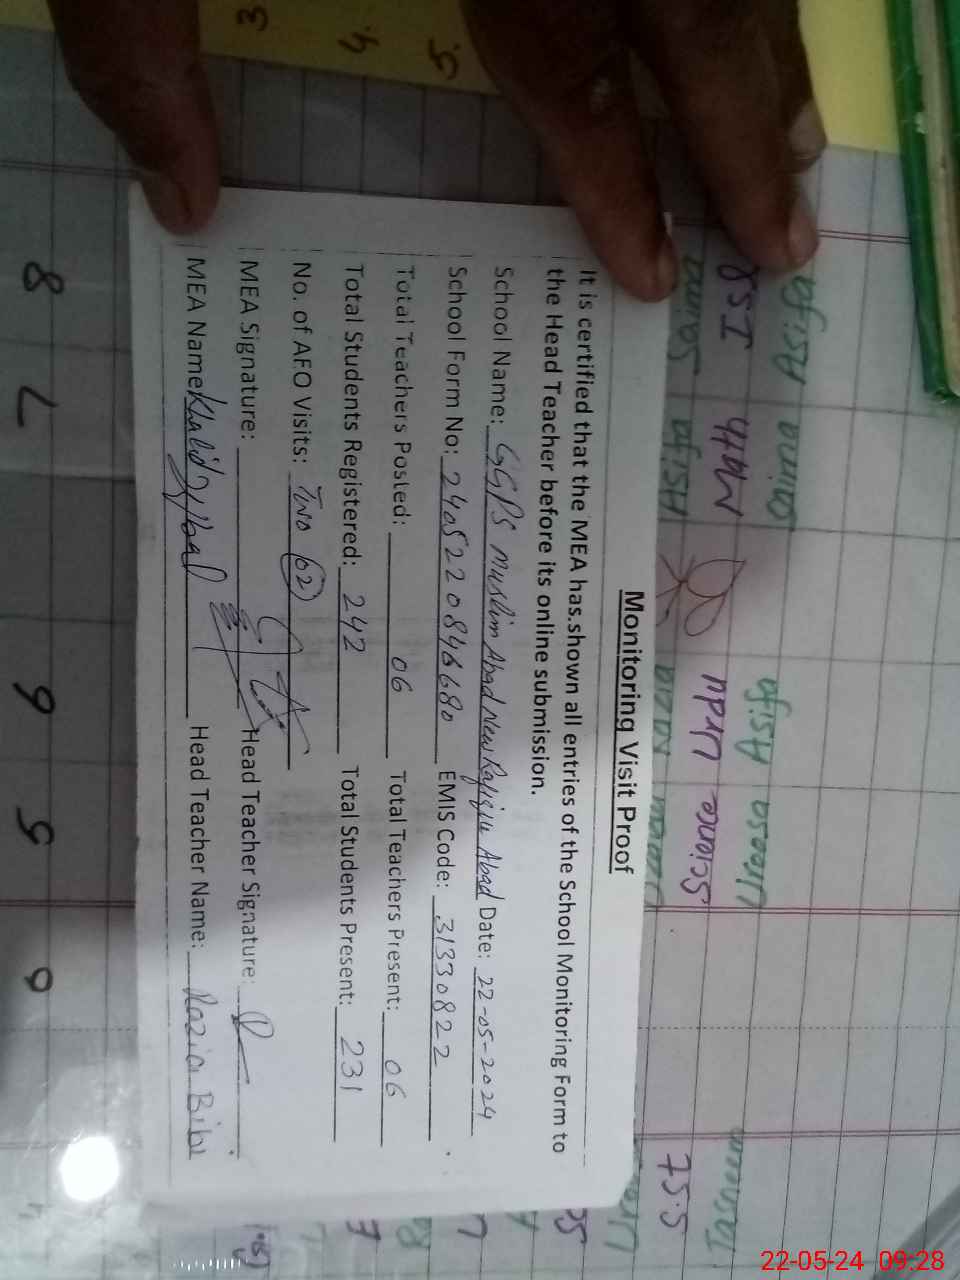 Monitoring Visit Proof
It is certified that the MEA has shown all entries of the School Monitoring Form to
the Head Teacher before its online submission.
School Name: GGPS Muslim Abad New Rafiqui Abad Date: 22-05-2024
School Form No: 2405220846680 EMIS Code: 31330822
Total Teachers Posted: 06 Total Teachers Present: 06
Total Students Registered: 242 Total Students Present: 231
No. of AEO Visits: Two (02)
MEA Signature: Head Teacher Signature:
MEA Name: Khalid Iqbal Head Teacher Name: Razia Bibi
3
4.
5.
Asifa Saima
Uroosa Asifa
ISS Math
Urdu Science
75.5
Saima Asifa
Razia
8 7 9 5 0
22-05-24 09:28